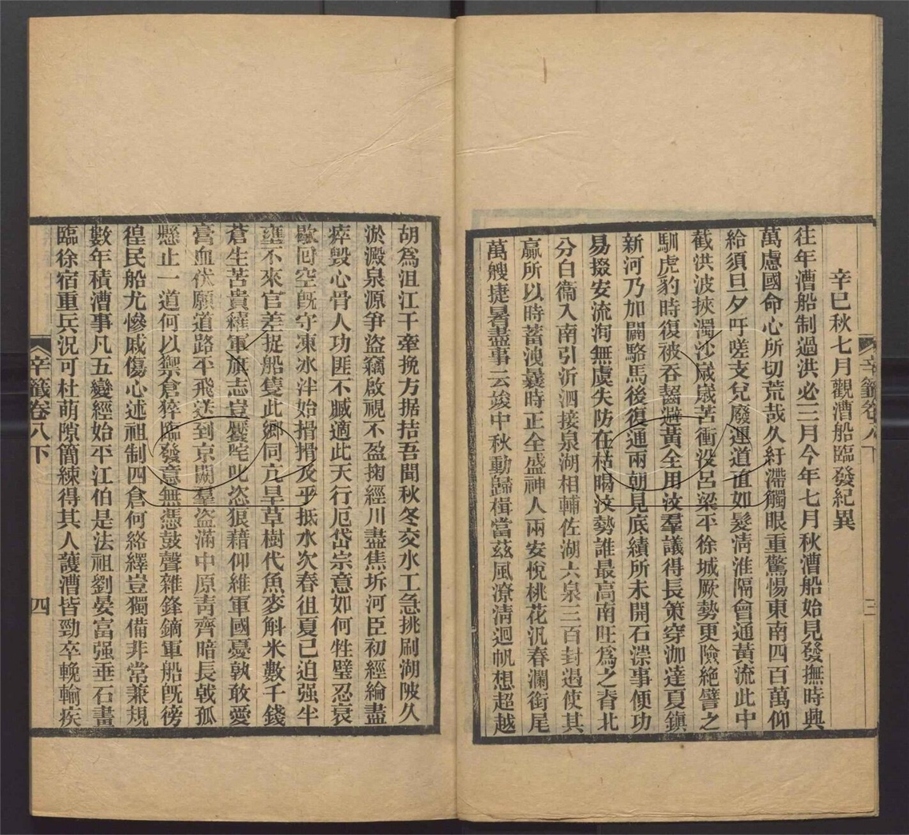 辛巳秋七月觀漕船臨發紀異
往年漕船制過洪必三月今年七月秋漕船始見發撫時與
萬慮國命心所切荒哉久紆滯觸眼重驚惕東南四百萬仰
給須旦夕吁嗟支兒廢運道直如髮淸淮隔會通黃流此中
截洪波挾濁沙崴嵗苦衝没呂梁平徐城厥勢更險絶譬之
馴虎豹時復被吞齧避黃全用汶羣議得長策穿泇達夏鎭
新河乃加闢駱馬後復通兩朝見底績所未開石漴事便功
易掇安流洵無虞失防在枯暍汶勢誰最高南旺爲之脊北
分白衞入南引沂泗接泉湖相輔佐湖六泉三百封遏使其
贏所以時蓄洩曩時正全盛神人兩安悅桃花汎春瀾銜尾
萬艘捷暑盡事云竣中秋動歸楫當茲風潦淸迴帆想超越
辛籤卷八下
三
胡爲沮江干牽挽方据拮吾聞秋冬交水工急挑刷湖陂久
淤澱泉源爭盜竊啟視不盈掬經川盡焦坼河臣初經綸盡
瘁毀心骨人功匪不臧適此天行厄岱宗意如何牲璧忍衰
歇河空旣守凍冰泮始搰搰及乎抵水次春徂夏已迫强半
壅不來官差捉船隻此鄉同亢旱草樹代魚麥斛米數千錢
蒼生苦貴糴軍旗志豈饜咤叱恣狼藉仰維軍國憂孰敢愛
膏血伏願道路平飛送到京闕羣盜滿中原靑齊暗長戟孤
懸止一道何以禦倉猝臨發意無憑鼓聲雜鋒鏑軍船旣徬
徨民船尤慘戚傷心述祖制四倉何絡繹豈獨備非常兼規
數年積漕事凡五變經始平江伯是法祖劉晏富强垂石畫
臨徐宿重兵況可杜萌隙簡練得其人護漕皆勁卒輓輸疾
辛籤卷八下
四